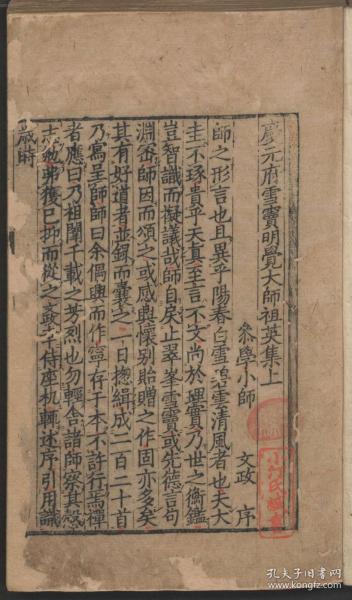 慶元府雪竇明覺大師祖英集上
叅學小師 文政 序
師之形言也且異乎陽春白雪碧雲清風者也夫大
圭不琢貴乎天真至言不文尚於理實乃世之衡鑑
豈智識而擬議哉師自戾止翠峯雪竇或先德言句
淵密師因而頌之或感興懷别貽贈之作固亦多矣
其有好道者並録而囊之一日揔緝成二百二十首
乃寫呈師師曰余偶興而作寧存于本不許行焉禪
者應曰乃祖闡千載之芳烈也勿輕舍諸師察其懇
志勉弗獲已抑而從之文政千侍座机輒述序引用識
歲時
孔夫子旧书网